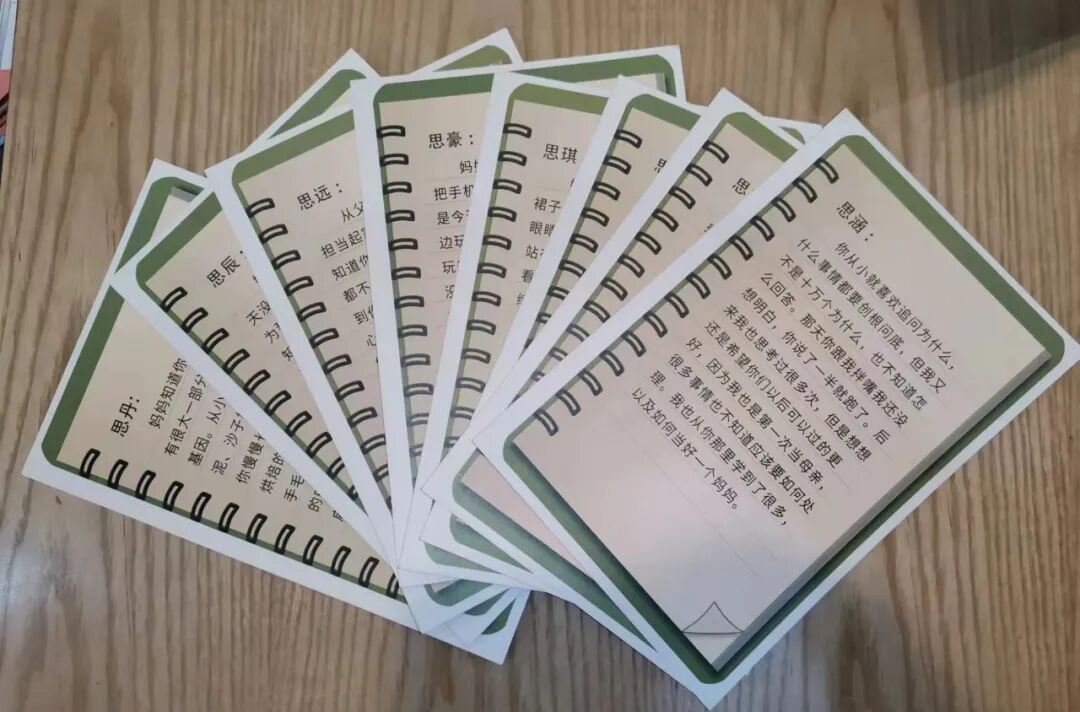 思丹：
妈妈知道你
有很大一部分
基因。从小
泥、沙子
你慢慢
烘焙的
手毛
的
思辰：
天没
为
知
思远：
从父
担当起
知道你
都不
到
心
思豪：
妈
把手机
是今
边玩
玩
没
思琪
裙子
眼睛
站
看
思
思
思涵：
你从小就喜欢追问为什么，
什么事情都要刨根问底，但我又
不是十万个为什么，也不知道怎
么回答。那天你跟我拌嘴我还没
想明白，你说了一半就跑了。后
来我也思考过很多次，但是想想
还是希望你们以后可以过的更
好，因为我也是第一次当母亲，
很多事情也不知道应该要如何处
理。我也从你那里学到了很多，
以及如何当好一个妈妈。